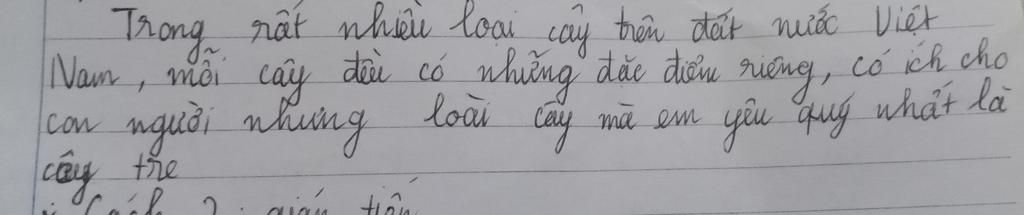 Trong rất nhiều loại cây trên đất nước Việt
Nam, mỗi cây đều có những đặc điểm riêng, có ích cho
con người nhưng loài cây mà em yêu quý nhất là
cây tre
Cách 2: gián tiếp